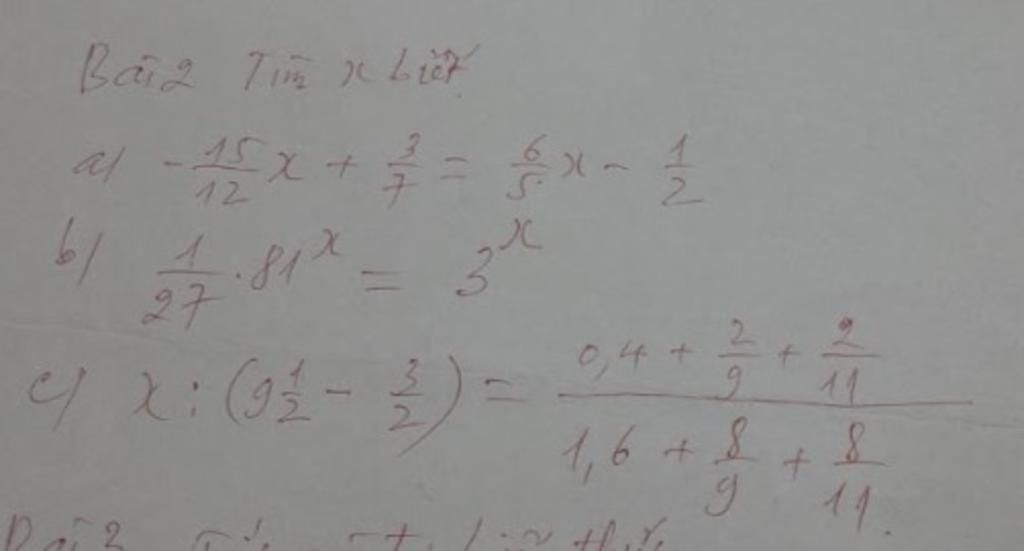 Bài 2 Tìm x biết
a) - 15/12 x + 3/7 = 6/5 x - 1/2
b) 1/27 . 81^x = 3^x
c) x : (9 1/2 - 3/2) = (0,4 + 2/9 + 2/11) / (1,6 + 8/9 + 8/11)
Bài 3